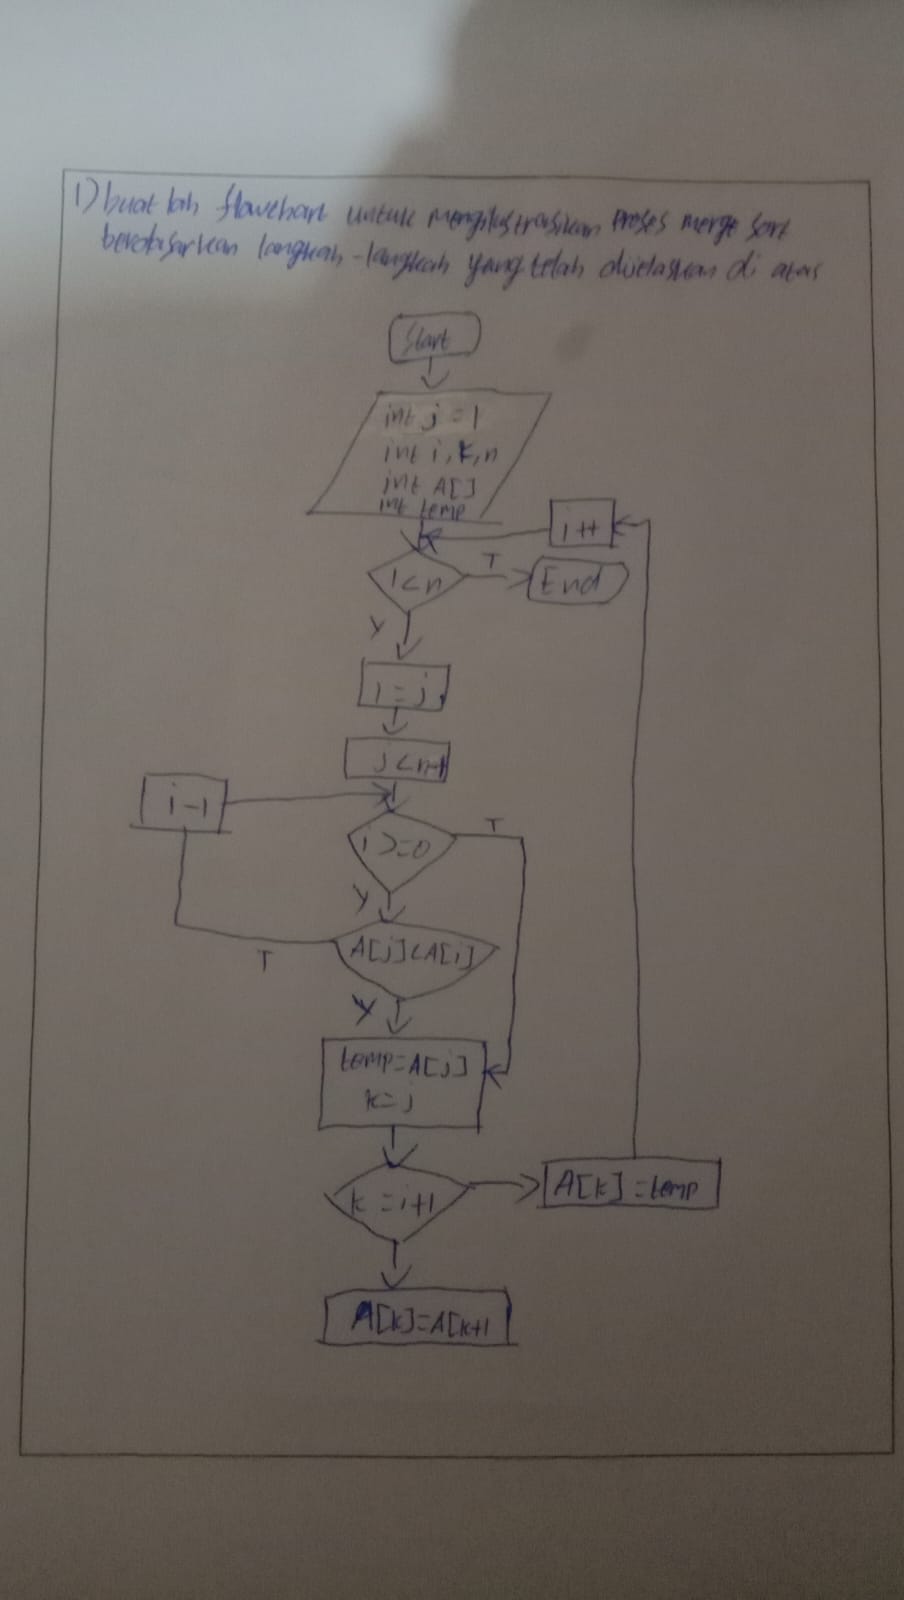 1) buat lah flowchart untuk mengilustrasikan proses merge sort
berdasarkan langkah-langkah yang telah dijelaskan di atas
Start
int j = 1
int i, k, n
int A[]
int temp
i++
i<n
T
End
Y
i = j
j < n-1
i-1
i >=0
T
Y
A[j]<A[i]
T
Y
temp=A[j]
k=j
k = i+1
A[k] = temp
A[k]=A[k+1